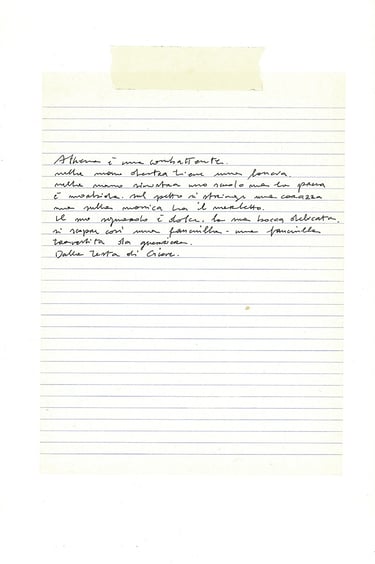 Athena è una combattente.
nella mano destra tiene una lancia,
nella mano sinistra uno scudo ma la
è morbida. sul petto si stringe una corazza
ma sulla manica ha il merletto.
il suo sguardo è dolce, la sua bocca delicata,
si scopre così una fanciulla - una fanciulla
travestita da guerriera.
Dalla testa di Giove.